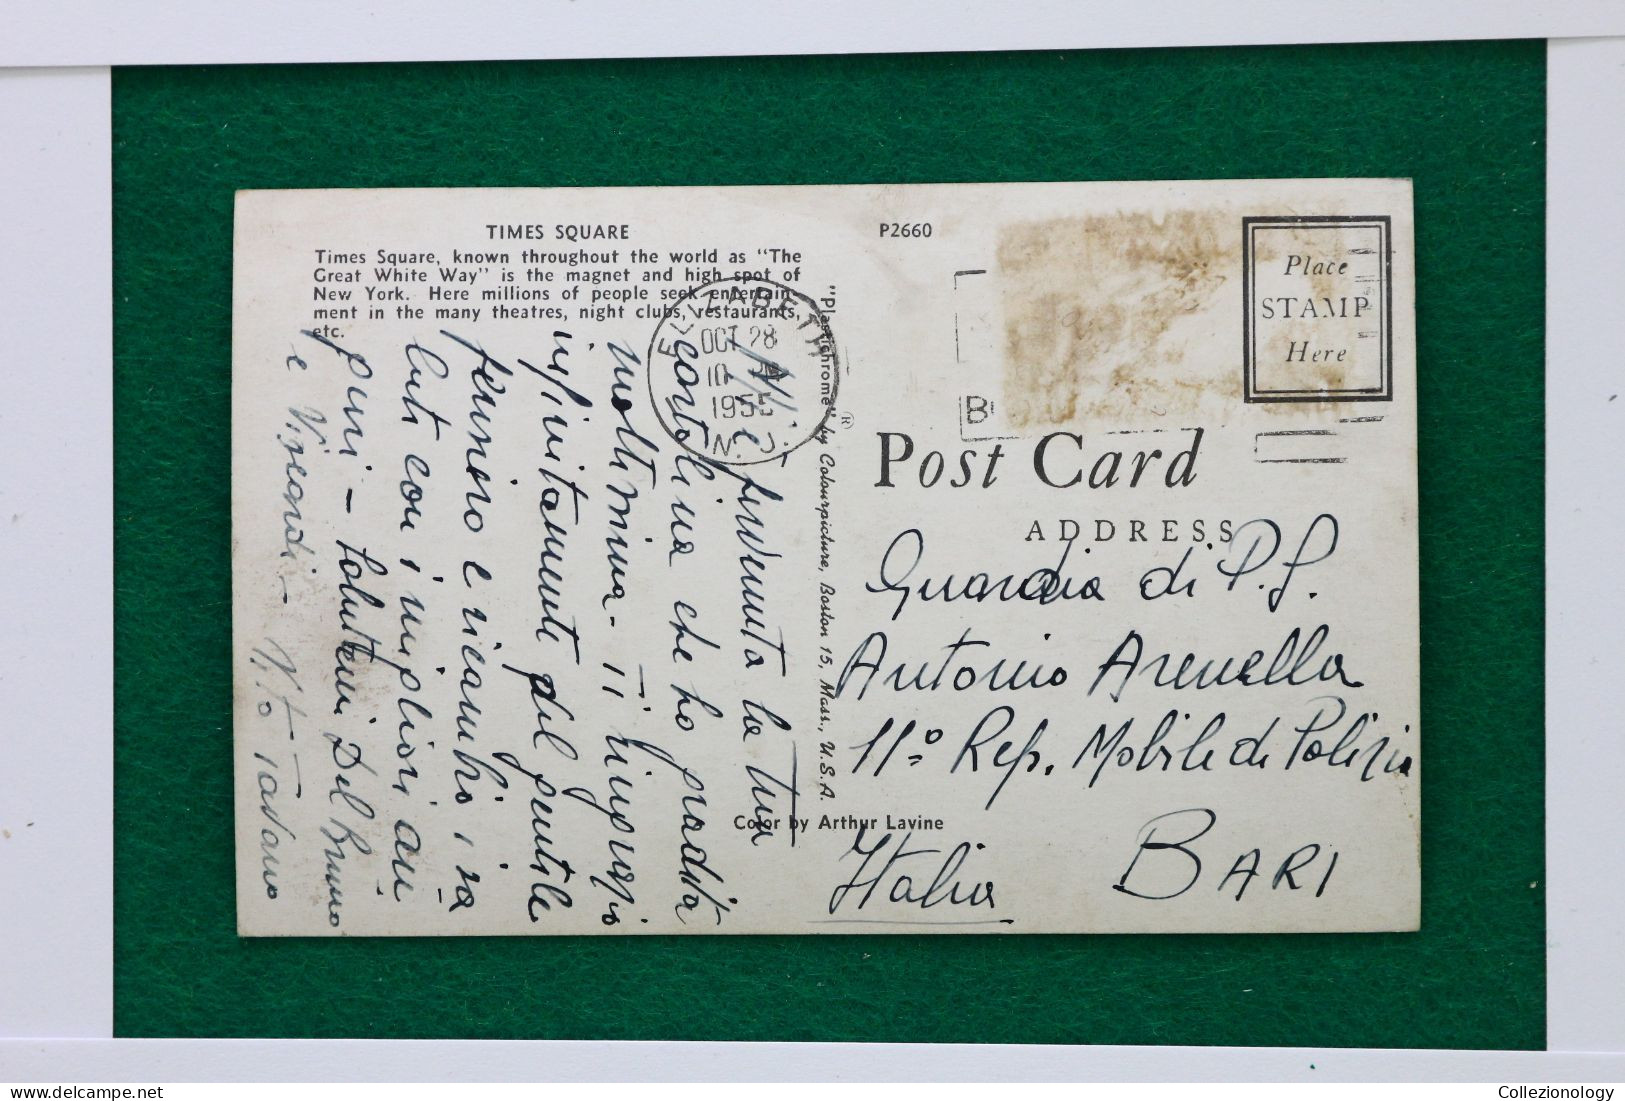 TIMES SQUARE
Times Square, known throughout the world as "The
Great White Way" is the magnet and high spot of
New York. Here millions of people seek entertain-
ment in the many theatres, night clubs, restaurants,
etc.
P2660
Place
STAMP
Here
ELIZABETH
OCT 28
1955
N.
B
"Plastichrome" ® by Colourpicture, Boston 15, Mass., U.S.A.
Post Card
ADDRESS
Guardia di P.S.
Antonio Arenella
11° Rep. Mobile di Polizia
BARI
Italia
Color by Arthur Lavine
Mi è pervenuta la tua
cartolina che ho gradita
moltissima - Ti ringrazio
infinitamente del gentile
pensiero e ricambio i sa
luti con i migliori au
guri - Salutami Del Bruno
e Visconti - Vito Tassano
Collezionology